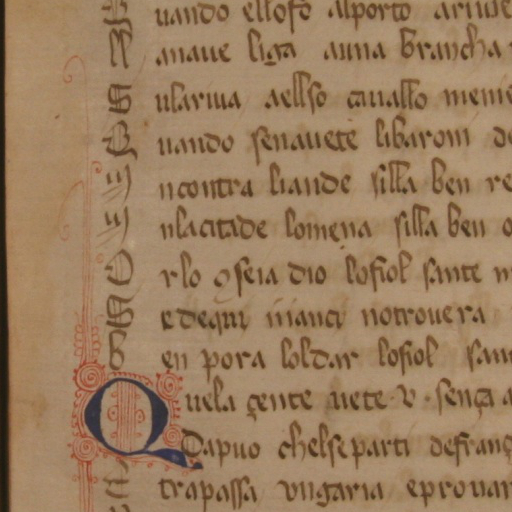 Q uando ellofo alporto ariue
M anaue liga auna brancha
S ularina aellso cauallo menie
Q uando senauete libaroni de
I ncontra liande silla ben re
I nlacitade lomena silla ben o
O rlo ꝯseia dio lofiol sante m
S edequi inanci notrouera
B en pora loldar lofiol san
Q uela çente uete v · sença a
Dapuo chelseparti defranç
trapassa vngaria eprouan